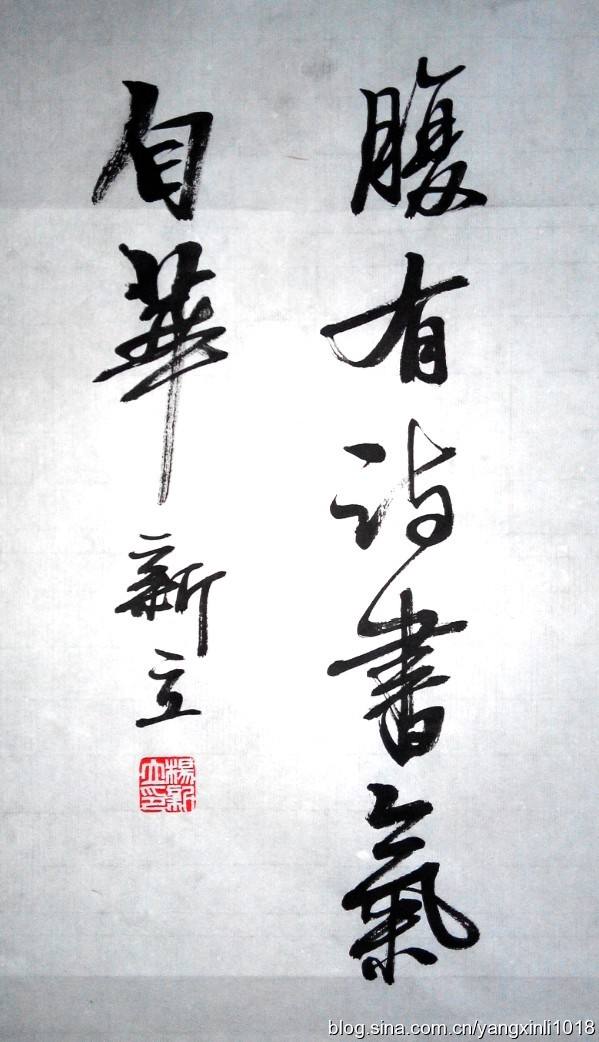 腹有詩書氣
自華
新立
楊新立印
blog.sina.com.cn/yangxinli1018